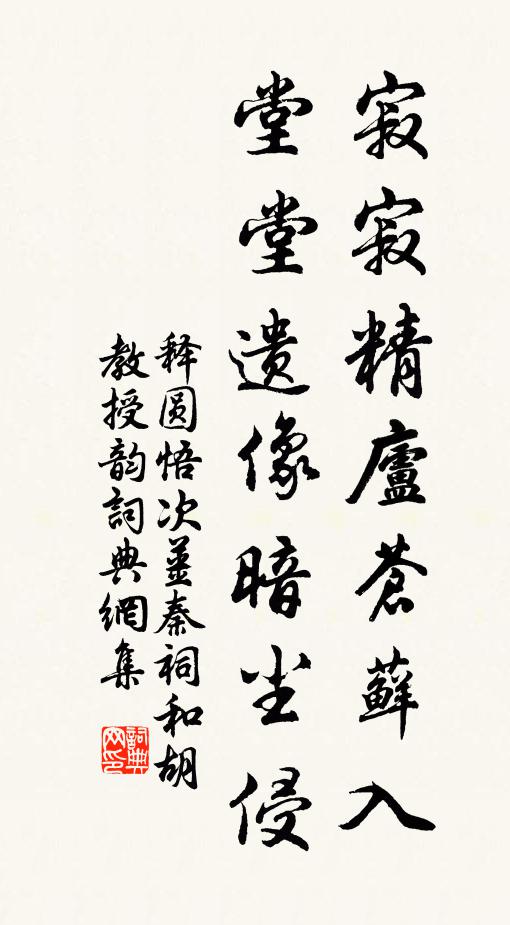 寂寂精廬蒼蘚入
堂堂遗像暗尘侵
释圆悟次薑秦祠和胡
教授韵詞典網集
詞典网印